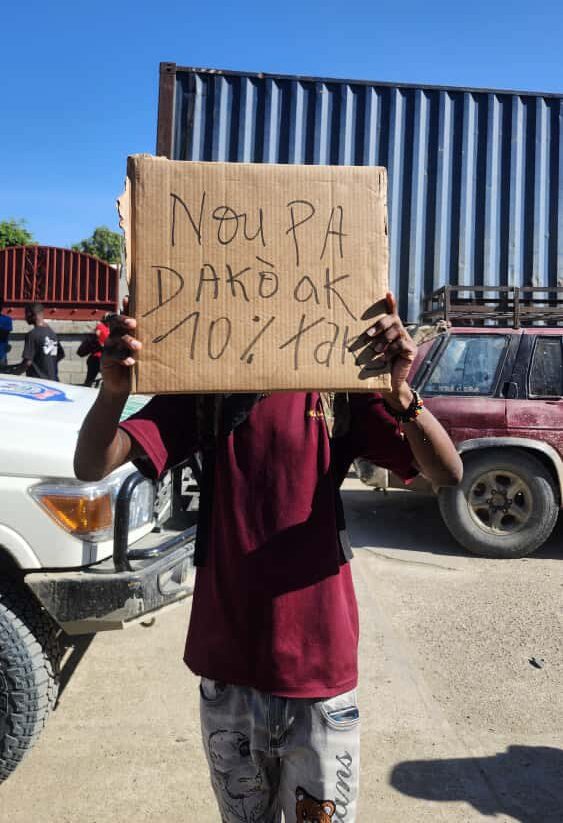 NOU PA
DAKÒ ak
10% taks
ans